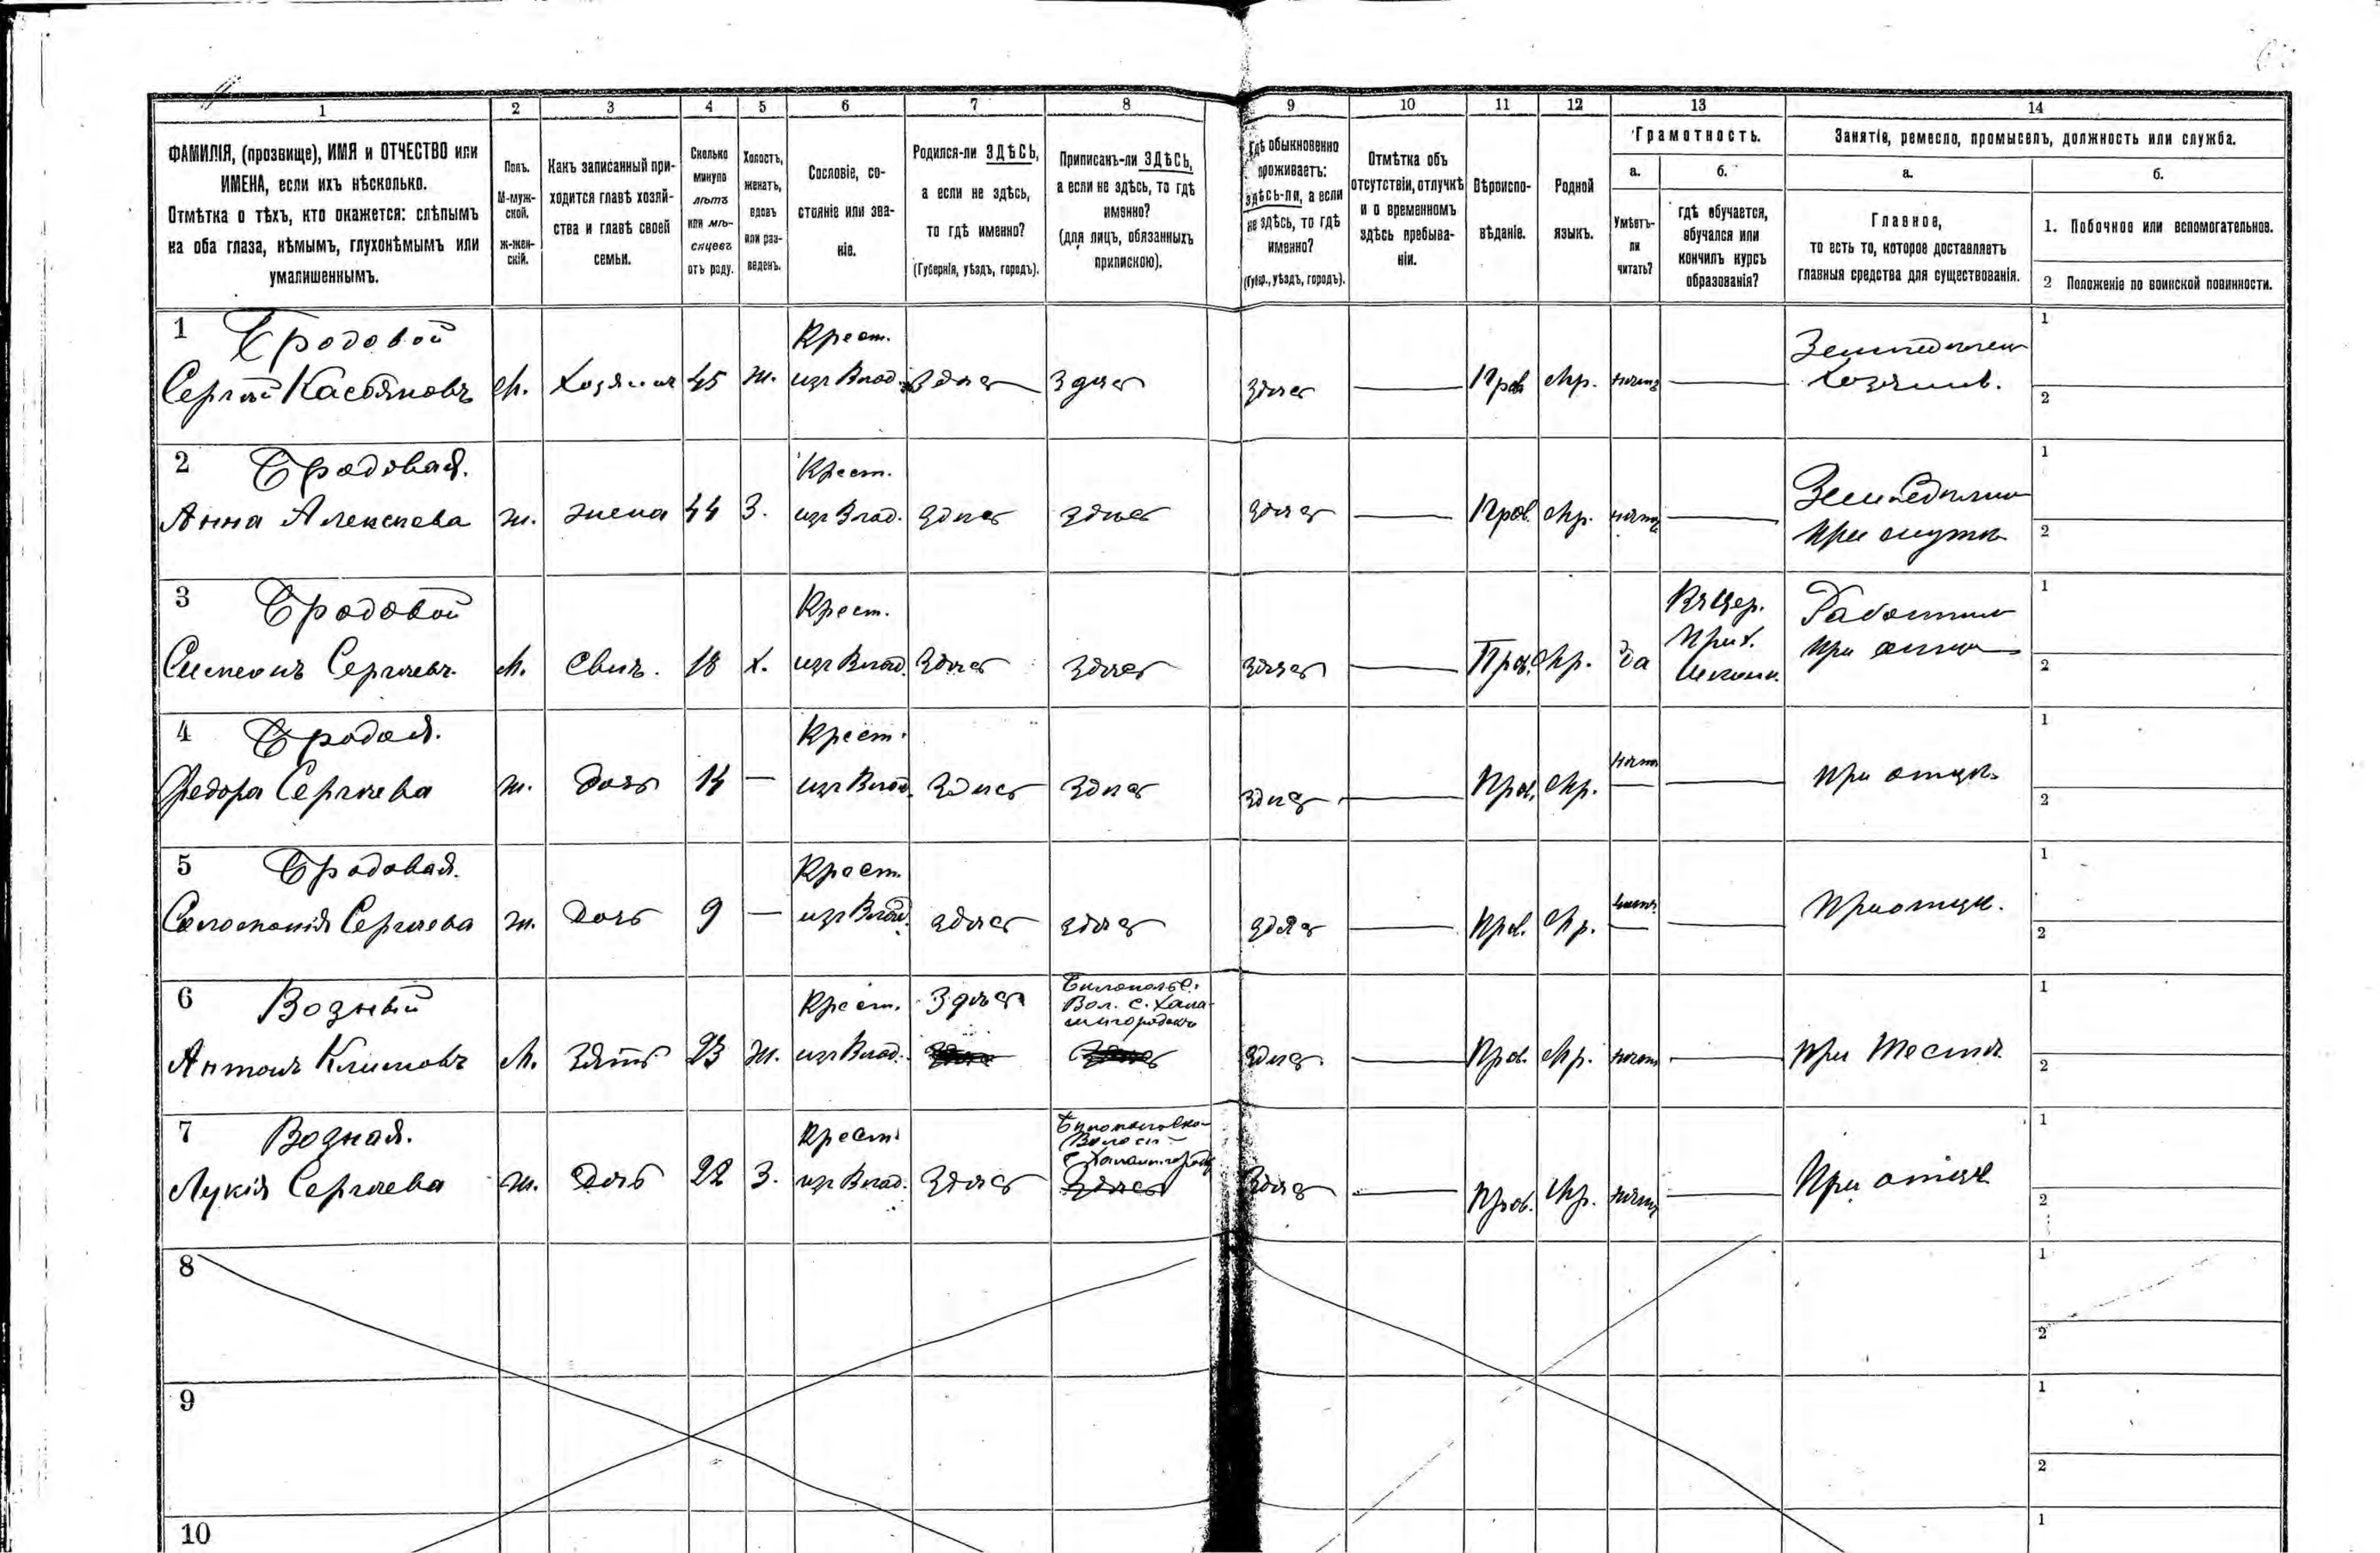 1 2 3 4 5 6 7 8 9 10 11 12 13 14
ФАМИЛІЯ, (прозвище), ИМЯ и ОТЧЕСТВО или
ИМЕНА, если ихъ нѣсколько.
Отмѣтка о тѣхъ, кто окажется: слѣпымъ
на оба глаза, нѣмымъ, глухонѣмымъ или
умалишеннымъ.
Полъ.
М-муж-
ской.
Ж-жен-
скій.
Какъ записанный при-
ходится главѣ хозяй-
ства и главѣ своей
семьи.
Сколько
минуло
лѣтъ
или мѣ-
сяцевъ
отъ роду.
Холостъ,
женатъ,
вдовъ
или раз-
веденъ.
Сословіе, со-
стояніе или зва-
ніе.
Родился-ли ЗДѢСЬ,
а если не здѣсь,
то гдѣ именно?
(Губернія, уѣздъ, городъ).
Приписанъ-ли ЗДѢСЬ,
а если не здѣсь, то гдѣ
именно?
(для лицъ, обязанныхъ
припискою).
Гдѣ обыкновенно
проживаетъ:
здѣсь-ли, а если
не здѣсь, то гдѣ
именно?
(Губер., уѣздъ, городъ).
Отмѣтка объ
отсутствіи, отлучкѣ
и о временномъ
здѣсь пребыва-
ніи.
Вѣроиспо-
вѣданіе.
Родной
языкъ.
Грамотность.
а.
Умѣетъ-
ли
читать?
б.
гдѣ обучается,
обучался или
кончилъ курсъ
образованія?
Занятіе, ремесло, промыселъ, должность или служба.
а.
Главное,
то есть то, которое доставляетъ
главныя средства для существованія.
б.
1. Побочное или вспомогательное.
2 Положеніе по воинской повинности.
1 Бродовой Крест. 1
Сергѣй Касьяновъ М. Хозяинъ 45 ж. изъ Влад. Здѣсь Здѣсь Здѣсь — Прав. Мр. — Хозяинъ. 2
2 Бродовая. Крест. 1
Анна Алексѣева ж. жена 44 З. изъ Влад. Здѣсь Здѣсь Здѣсь — Прав. Мр. — при мужѣ 2
3 Бродовой Крест. Въ Цер. 1
Симеонъ Сергѣевъ. М. Сынъ. 18 Х. изъ Влад. Здѣсь Здѣсь Здѣсь — Прав. Мр. да Прих. 2
4 Бродовая. Крест. 1
Федора Сергѣева ж. дочь 14 — изъ Влад. Здѣсь Здѣсь Здѣсь — Прав. Мр. — при отцѣ. 2
5 Бродовая. Крест. 1
Соломонія Сергѣева ж. дочь 9 — изъ Влад. Здѣсь Здѣсь Здѣсь — Прав. Мр. — при отцѣ. 2
6 Возный Крест. Здѣсь Вол. с. 1
Антонъ Климовъ М. Зять 23 ж. изъ Влад. Здѣсь — Прав. Мр. — при тестѣ 2
7 Возная. Крест. 1
Лукія Сергѣева ж. дочь 22 З. изъ Влад. Здѣсь Здѣсь Здѣсь — Прав. Мр. — При отцѣ 2
8 1
2
9 1
2
10 1